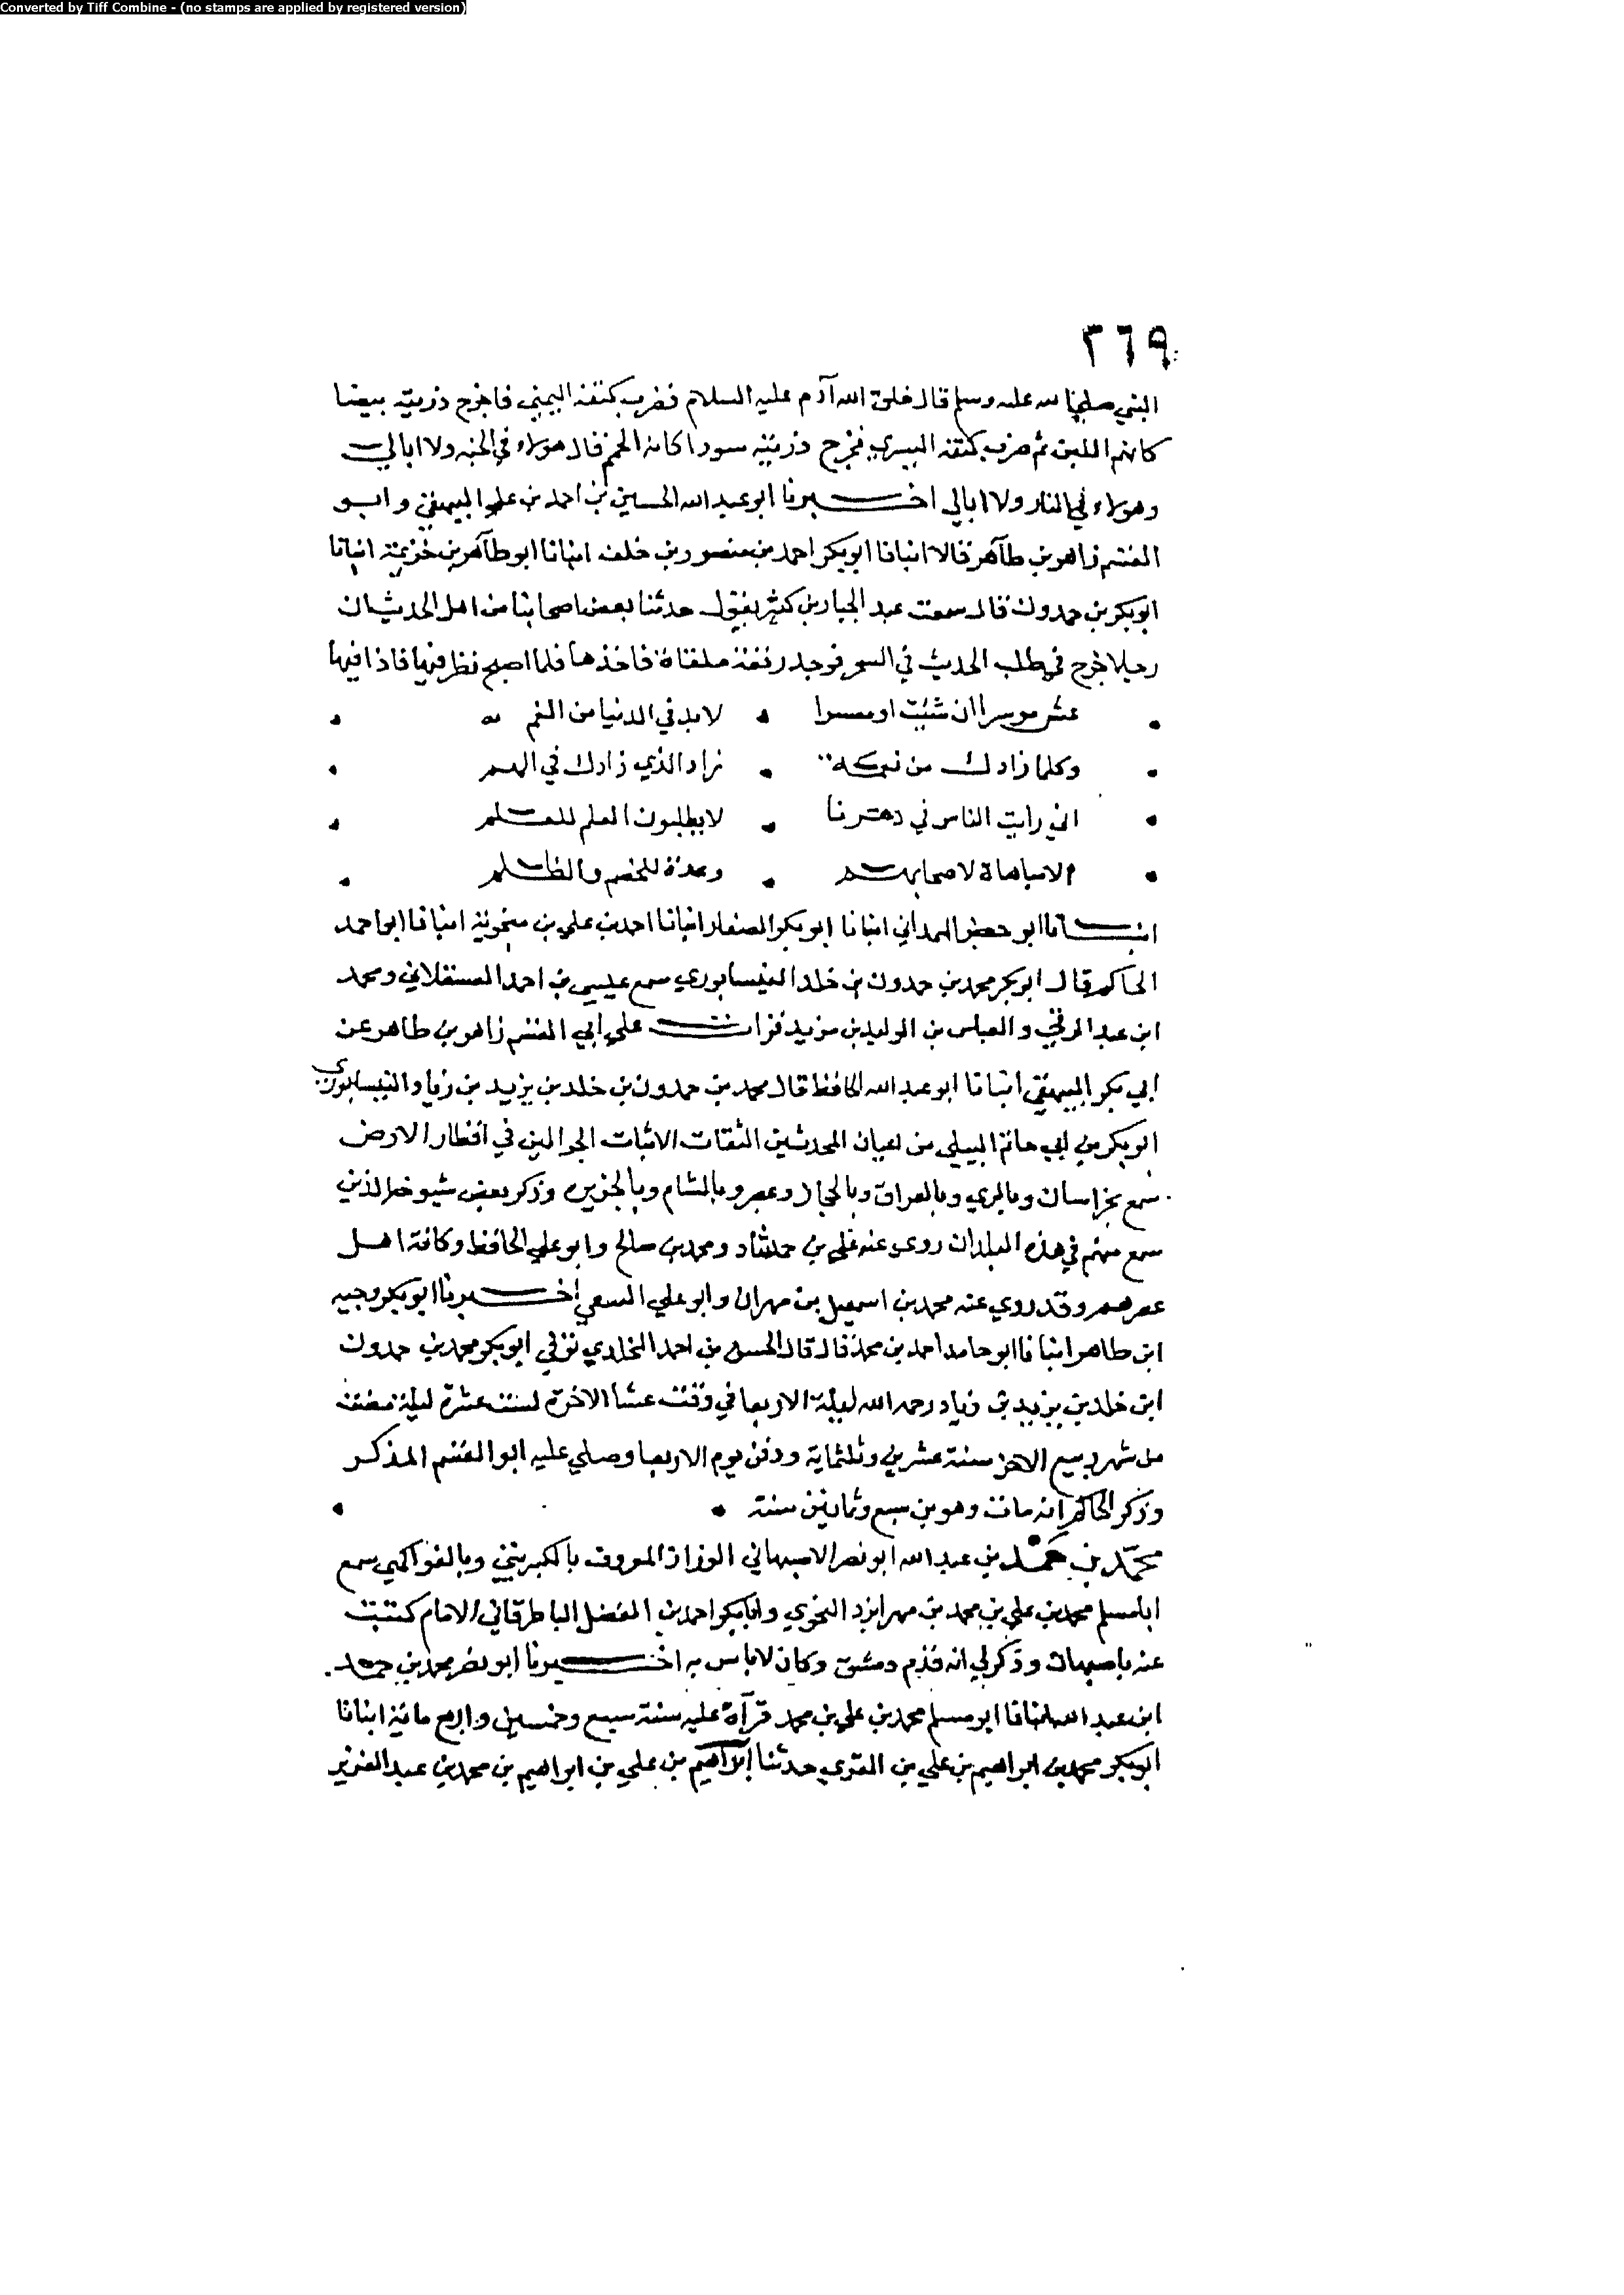 Converted by Tiff Combine - (no stamps are applied by registered version)
٣٦٩
النبي صلى الله عليه وسلم قال خلق الله آدم عليه السلام فضرب كتفه اليمني فاخرج ذريته بيضا
كانهم اللبن ثم ضرب كتفه اليسري فخرج ذريته سودا كانه الحمم قال هولاء في الجنه ولا ابالي
وهولاء في النار ولا ابالي اخبرنا ابو عبد الله الحسين بن احمد بن علي البيهقي وابو
القسم زاهر بن طاهر قالا انبانا ابو بكر احمد بن منصور بن خلف انبانا ابو طاهر بن خزيمة انبانا
ابو بكر بن حمدون قال سمعت عبد الجبار بن كثير يقول حدثنا بعض اصحابنا من اهل الحديث ان
رجلا خرج في طلب الحديث في السحر فوجد رقعة ملقاة فاخذها فلما اصبح نظر فيها فاذا فيها
عش موسرا ان شئت او معسرا • لا بد في الدنيا من الغم
وكلما زادك من نعمة • زاد الذي زادك في الهم
اني رايت الناس في دهرنا • لا يطلبون العلم للعلم
الا مباهاة لاصحابهم • وعدة للخصم والظلم
انبانا ابو جعفر الهمداني انبانا ابو بكر الصفار انبانا احمد بن علي بن منجوية انبانا ابو احمد
الحاكم قال ابو بكر محمد بن حمدون بن خلد النيسابوري سمع عيسى بن احمد العسقلاني ومحمد
ابن عبد الرقي والعباس بن الوليد بن مزيد قرات علي ابي القسم زاهر بن طاهر عن
ابي بكر البيهقي انبانا ابو عبد الله الحافظ قال محمد بن حمدون بن خلد بن يزيد بن زياد النيسابوري
ابو بكر بن ابي حاتم البيلي من اعيان المحدثين الثقات الاثبات الجوالين في اقطار الارض
سمع بخراسان وبالري وبالعراق وبالحجاز وبمصر وبالشام وبالجزيره وذكر بعض شيوخه الذين
سمع منهم في هذه البلدان روى عنه علي بن حمشاد ومحمد بن صالح وابو علي الحافظ وكافة اهل
عصرهم وقد روي عنه محمد بن اسمعيل بن مهران وابو علي الثقفي اخبرنا ابو بكر وجيه
ابن طاهر انبانا ابو حامد احمد بن محمد قال قال الحسن بن احمد المخلدي توفي ابو بكر محمد بن حمدون
ابن خلد بن يزيد بن زياد رحمه الله ليلة الاربعا في وقت عشا الاخرة لست عشرة ليلة مضت
من شهر ربيع الاخر سنة عشرين وثلثماية ودفن يوم الاربعا وصلي عليه ابو القسم المذكر
وذكر الحاكم انه مات وهو بن سبع وثمانين سنة •
محمد بن حمد بن عبد الله ابو نصر الاصبهاني الوزان المعروف بالكبريتي وبالفواكهي سمع
ابا مسلم محمد بن علي بن محمد بن مهرايزد النحوي وابا بكر احمد بن الفضل الباطرقاني الامام كتبت
عنه باصبهان وذكر لي انه قدم دمشق وكان لا باس به اخبرنا ابو نصر محمد بن حمد
ابن عبد الله انبانا ابو مسلم محمد بن علي بن محمد قرآة عليه سنة سبع وخمسين واربع مائية انبانا
ابو بكر محمد بن ابراهيم بن علي بن المقري حدثنا ابراهيم بن علي بن ابراهيم بن محمد بن عبد العزيز